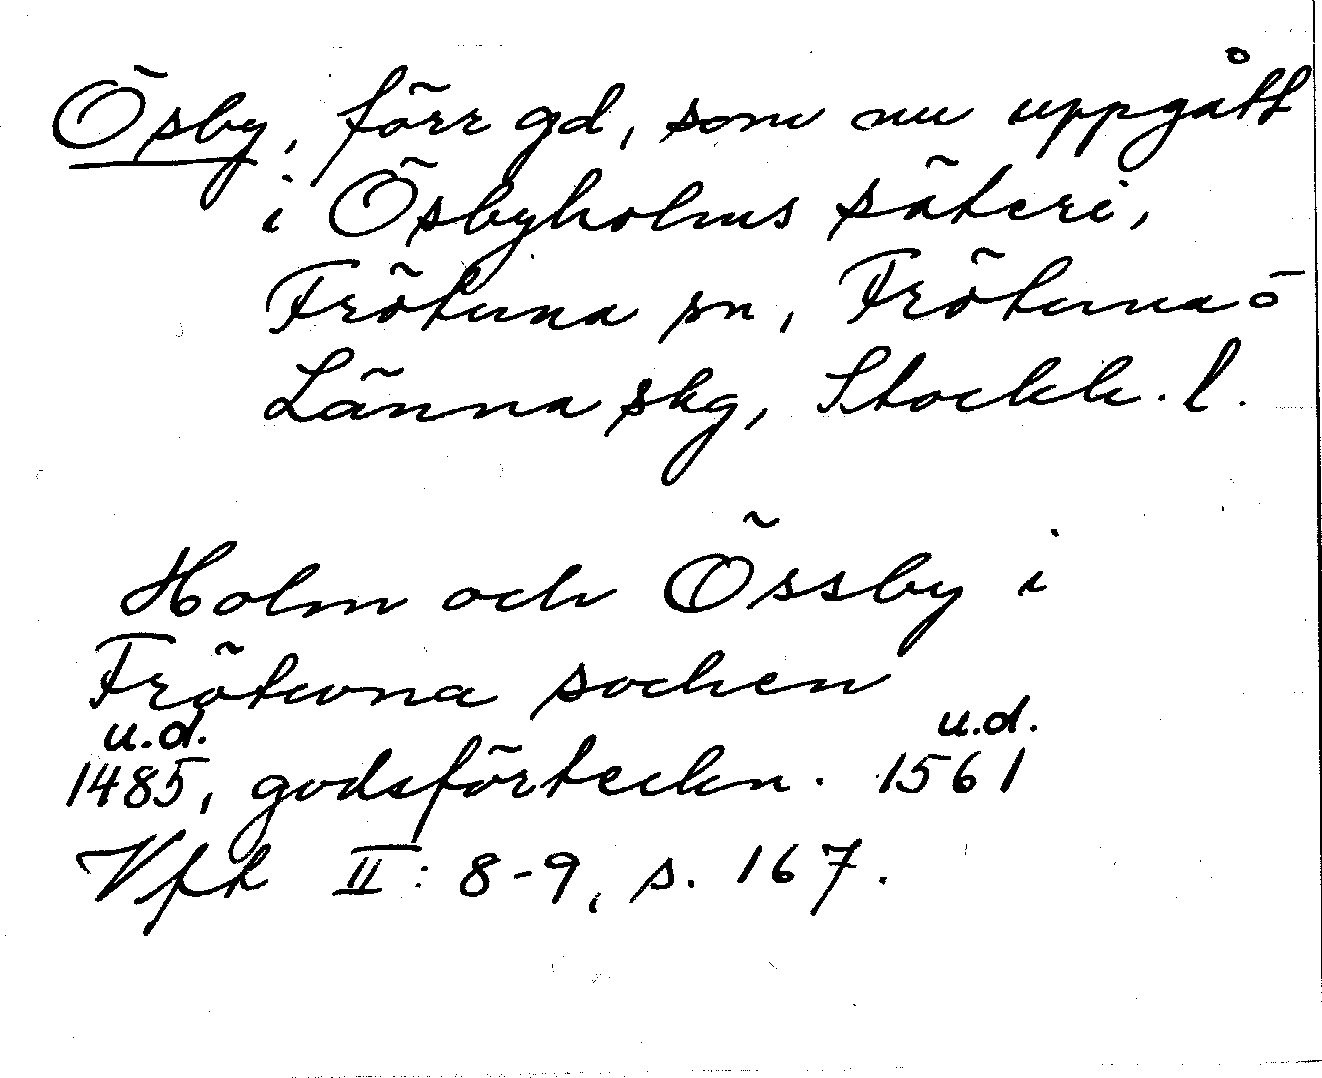 Ösby, förr gd, som nu uppgått
i Ösbyholms säteri,
Frötuna sn, Frötuna o
Länna skg, Stockh. l.
Holm och Össby i
Frötwna sochen
u.d. u.d.
1485, godsförteckn. 1561
Vfh II: 8-9, s. 167.